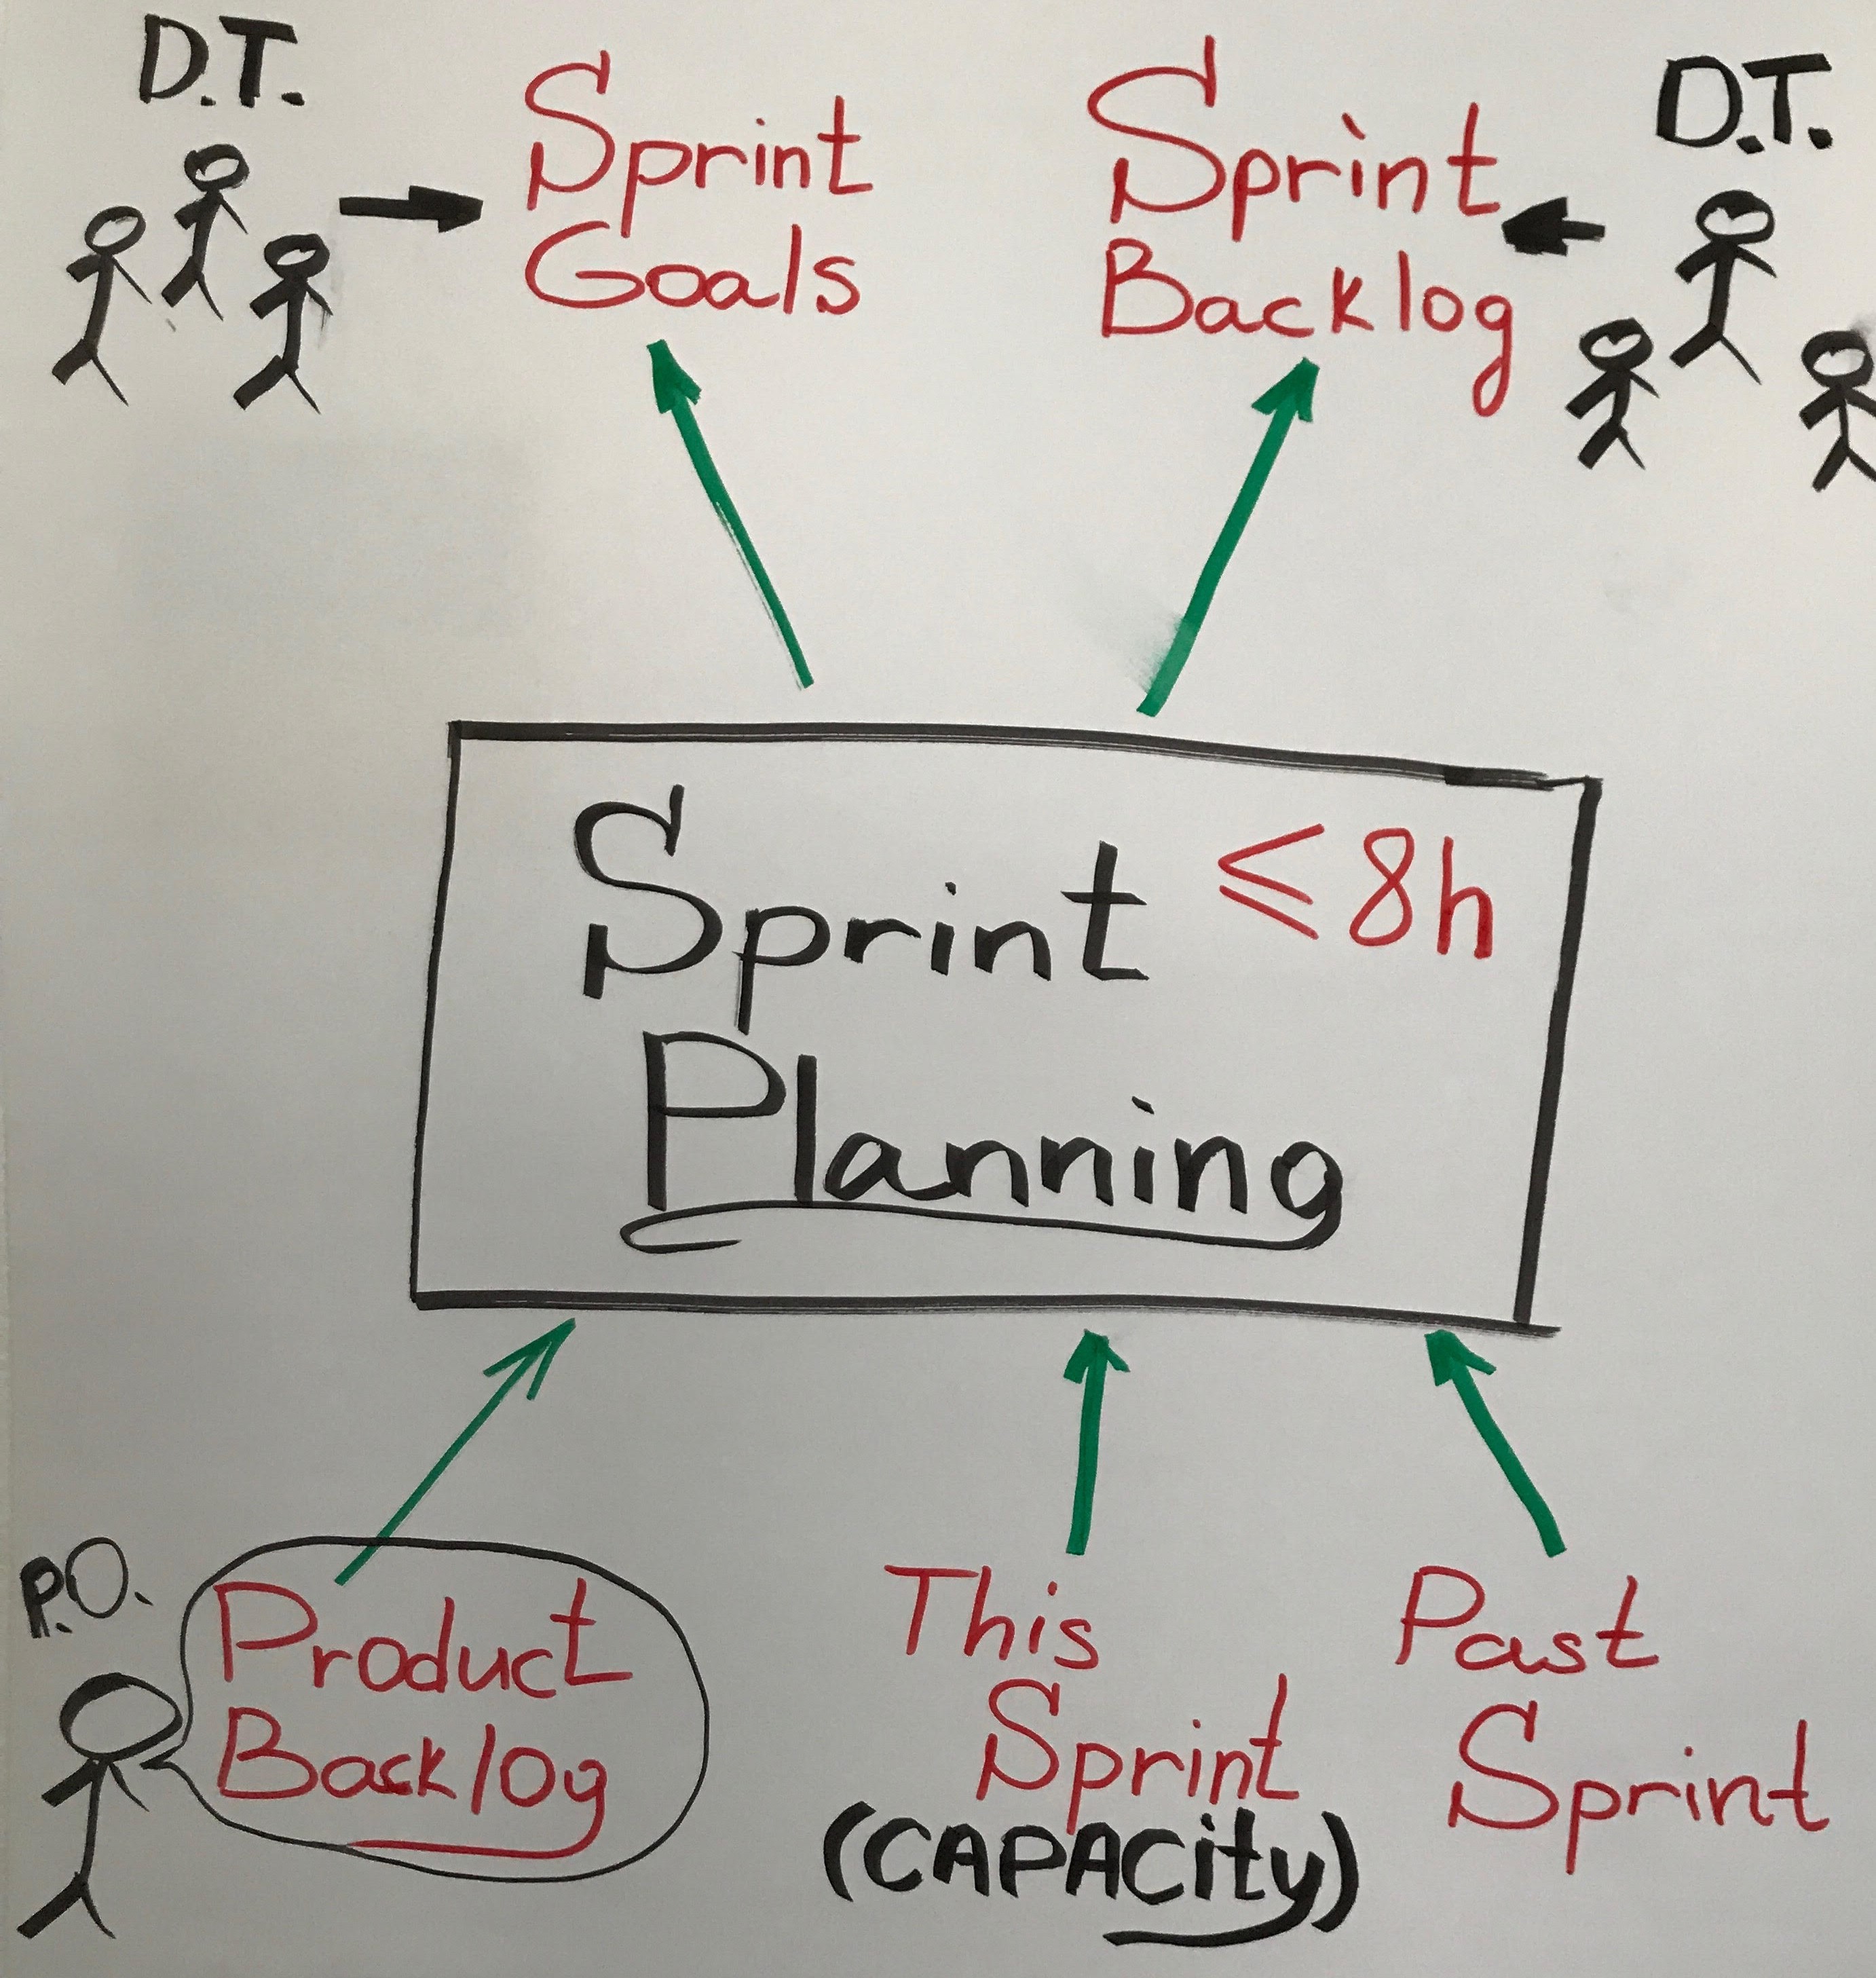 D.T.
Sprint
Goals
Sprint
Backlog
D.T.
Sprint ≤ 8h
Planning
P.O.
Product
Backlog
This
Sprint
(CAPACity)
Past
Sprint